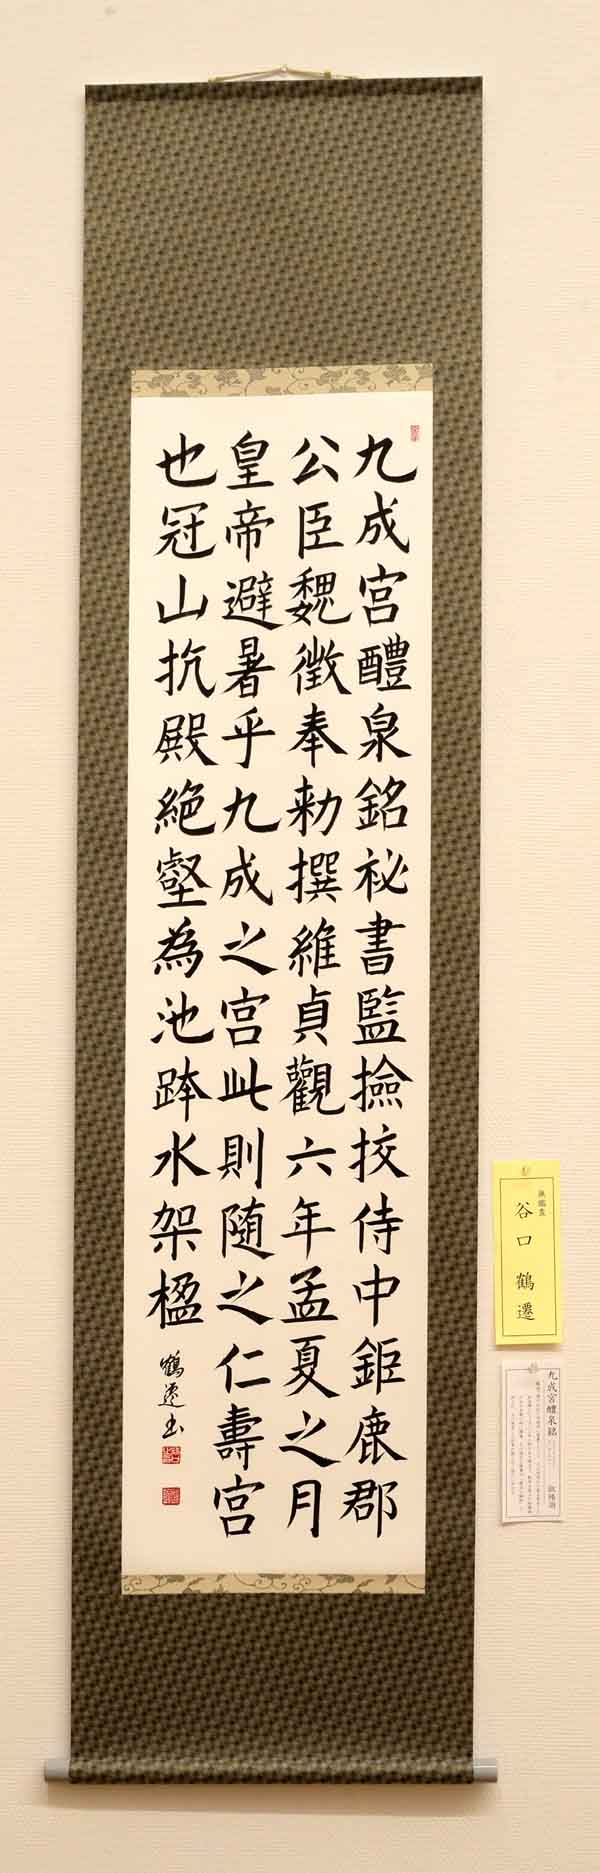 九成宮醴泉銘祕書監撿挍侍中鉅鹿郡
公臣魏徵奉勅撰維貞觀六年孟夏之月
皇帝避暑乎九成之宮此則随之仁壽宮
也冠山抗殿絶壑為池跨水架楹
鶴遷書
無鑑査
谷口 鶴遷
九成宮醴泉銘
欧陽詢